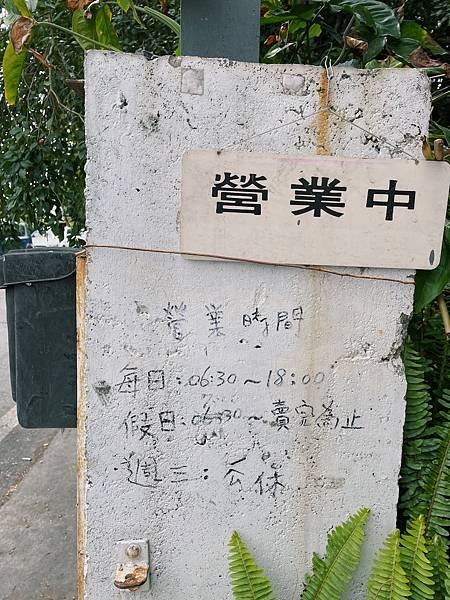 營業中
營業時間
每日：06:30～18:00
假日：06:30～賣完為止
週三：公休